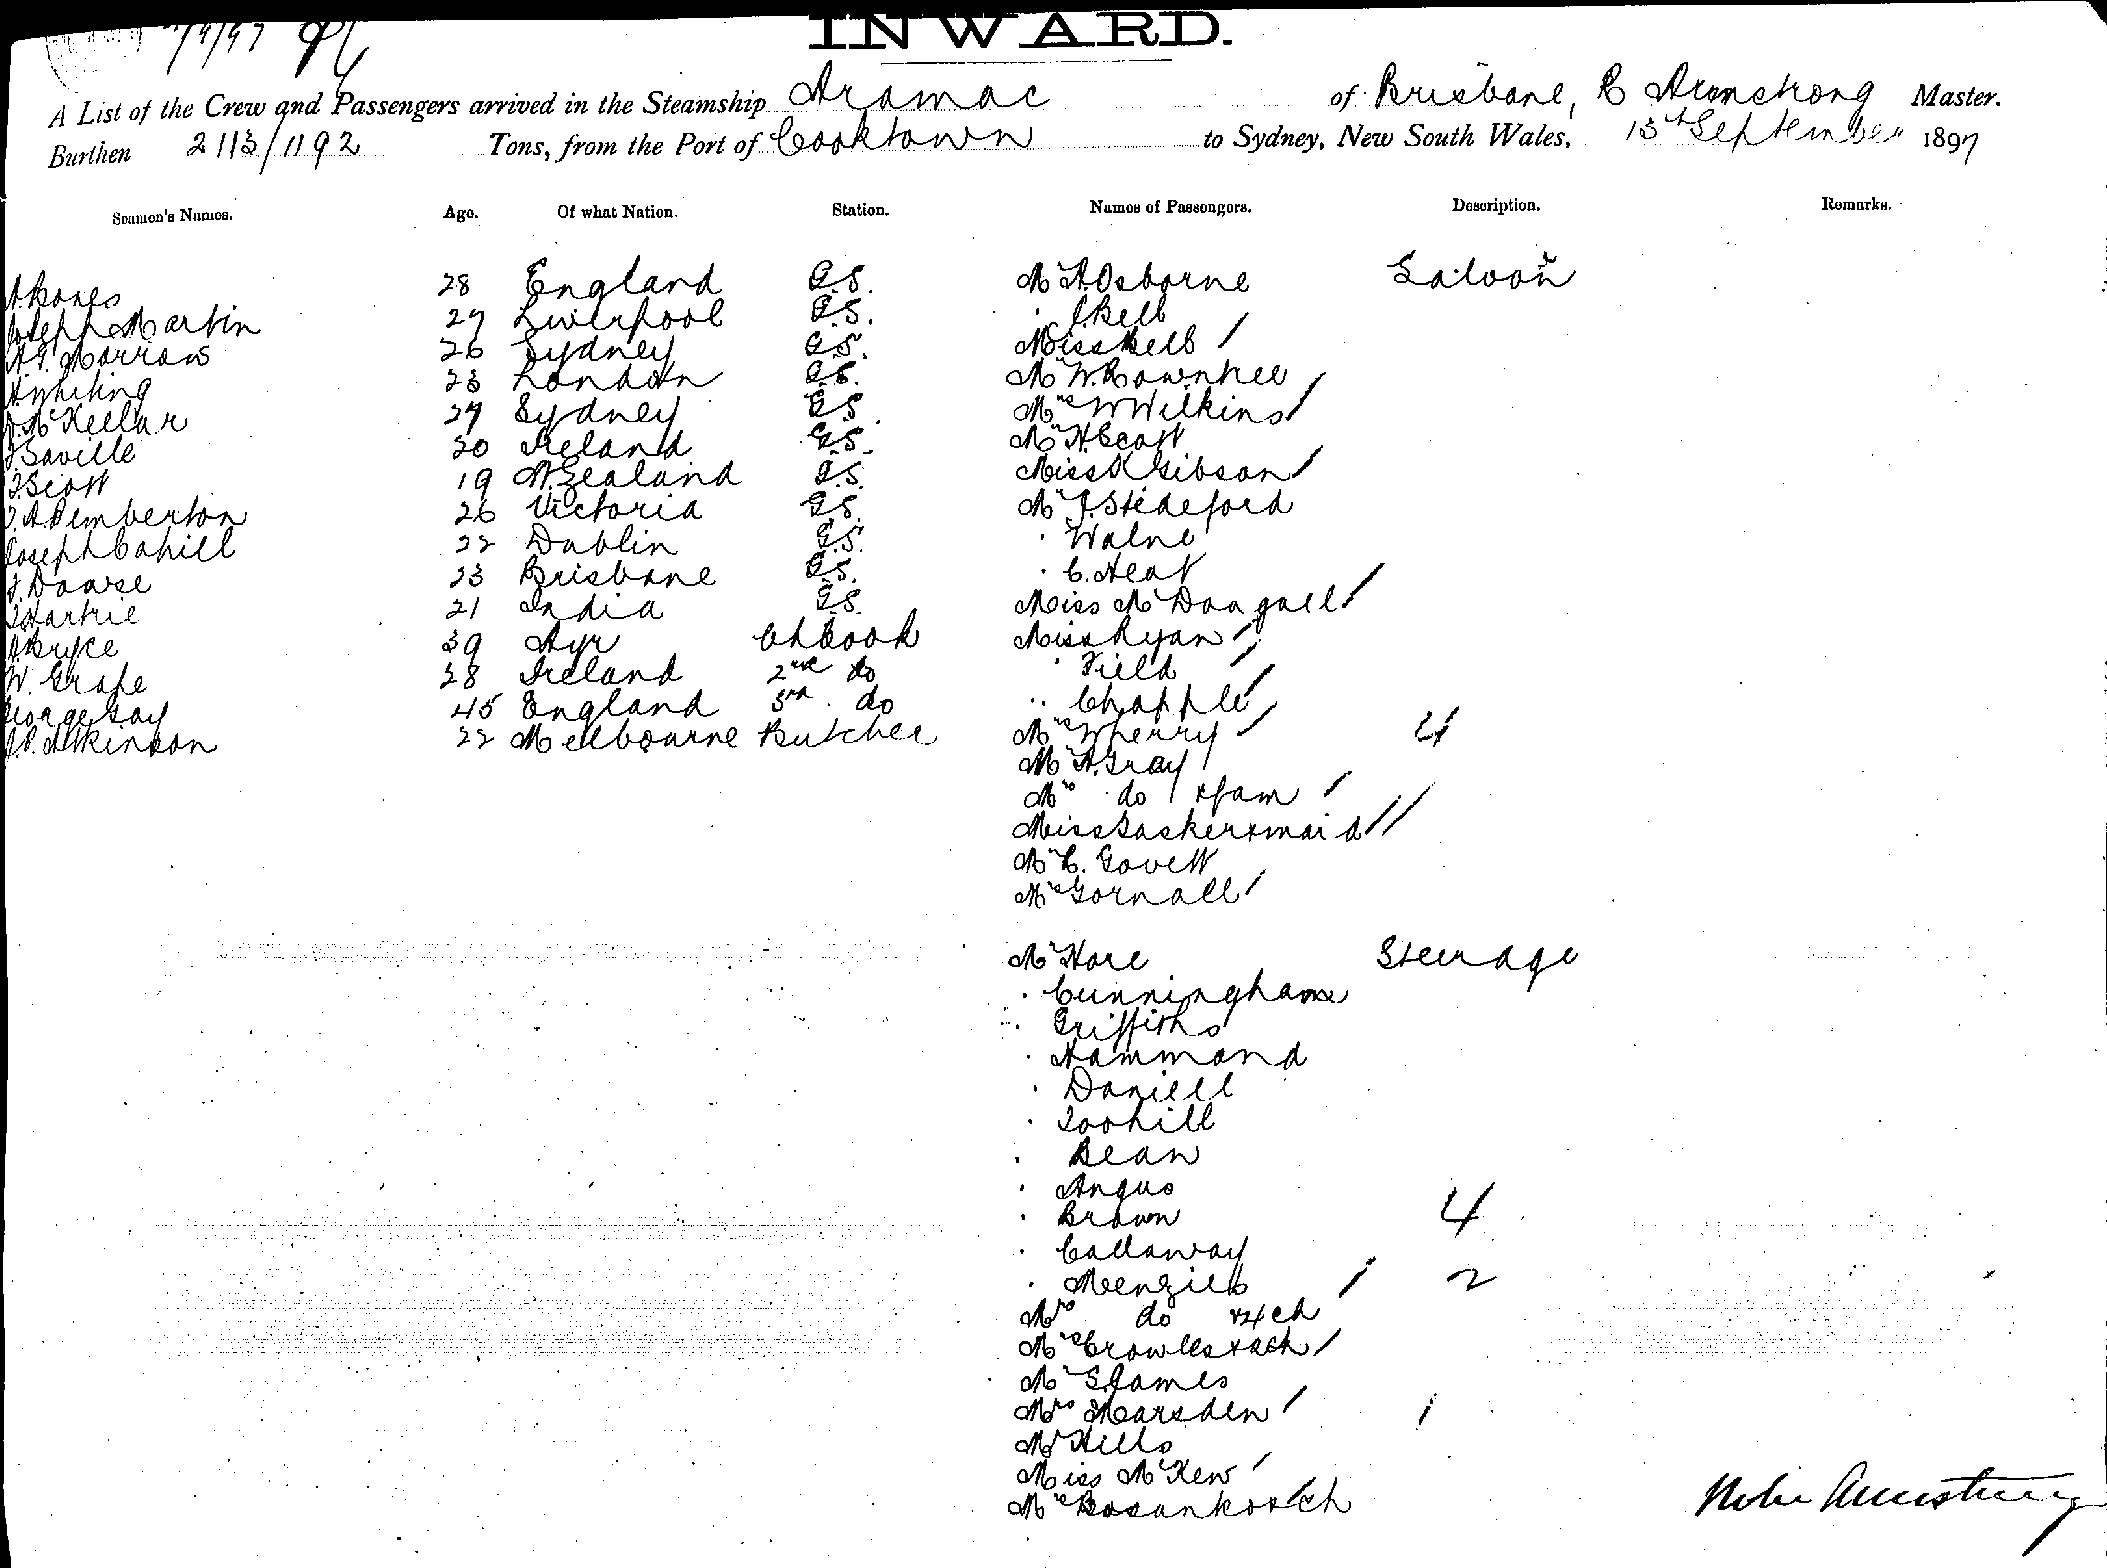 INWARD.
A List of the Crew and Passengers arrived in the Steamship Aramac of Brisbane, Armstrong Master.
Burthen 2113/1192 Tons, from the Port of Cooktown to Sydney, New South Wales, 13th September 1897
Seamen's Names. Age. Of what Nation. Station. Names of Passengers. Description. Remarks.
28 England G.S. Mr A Osborne Saloon
Joseph Martin 27 Liverpool G.S. " Bell
A.G. Morrow 26 Sydney G.S. Miss Bell /
A Whiting 23 London G.S. Mr W. Rowntree
J. McKellar 27 Sydney G.S. Mrs W Wilkins /
J Saville 20 Ireland G.S. Mr H Scott
J Scott 19 N. Zealand G.S. Miss K Gibson /
J.A Pemberton 26 Victoria G.S. Mr J. Stedeford
Joseph Cahill 22 Dublin G.S. " Walne
23 Brisbane G.S. " C. Heat
J Hartrie 21 India G.S. Miss McDougall /
A Bryce 39 Ayr Ch Cook Miss Ryan /
W. Grape 28 Ireland 2nd do " Field /
George Gay 45 England 3rd do " Chapple /
Atkinson 22 Melbourne Butcher Mrs Wherry / 4
Mr A. Gray
Mrs do & fam /
Miss Gasker & maid //
Mr C. Govett
Mrs Gornall /
Mr Hore Steerage
" Cunningham
" Griffiths
" Hammond
" Daniell
" Toohill
" Bean
" Angus
" Brown 4
" Callaway
" Menzies / 2
Mrs do & 4 ch
Mrs Crowles & ch /
Mr G James
Mrs Marsden / 1
Mr Hills
Miss McKew /
Mrs Bosanko & ch
Armstrong